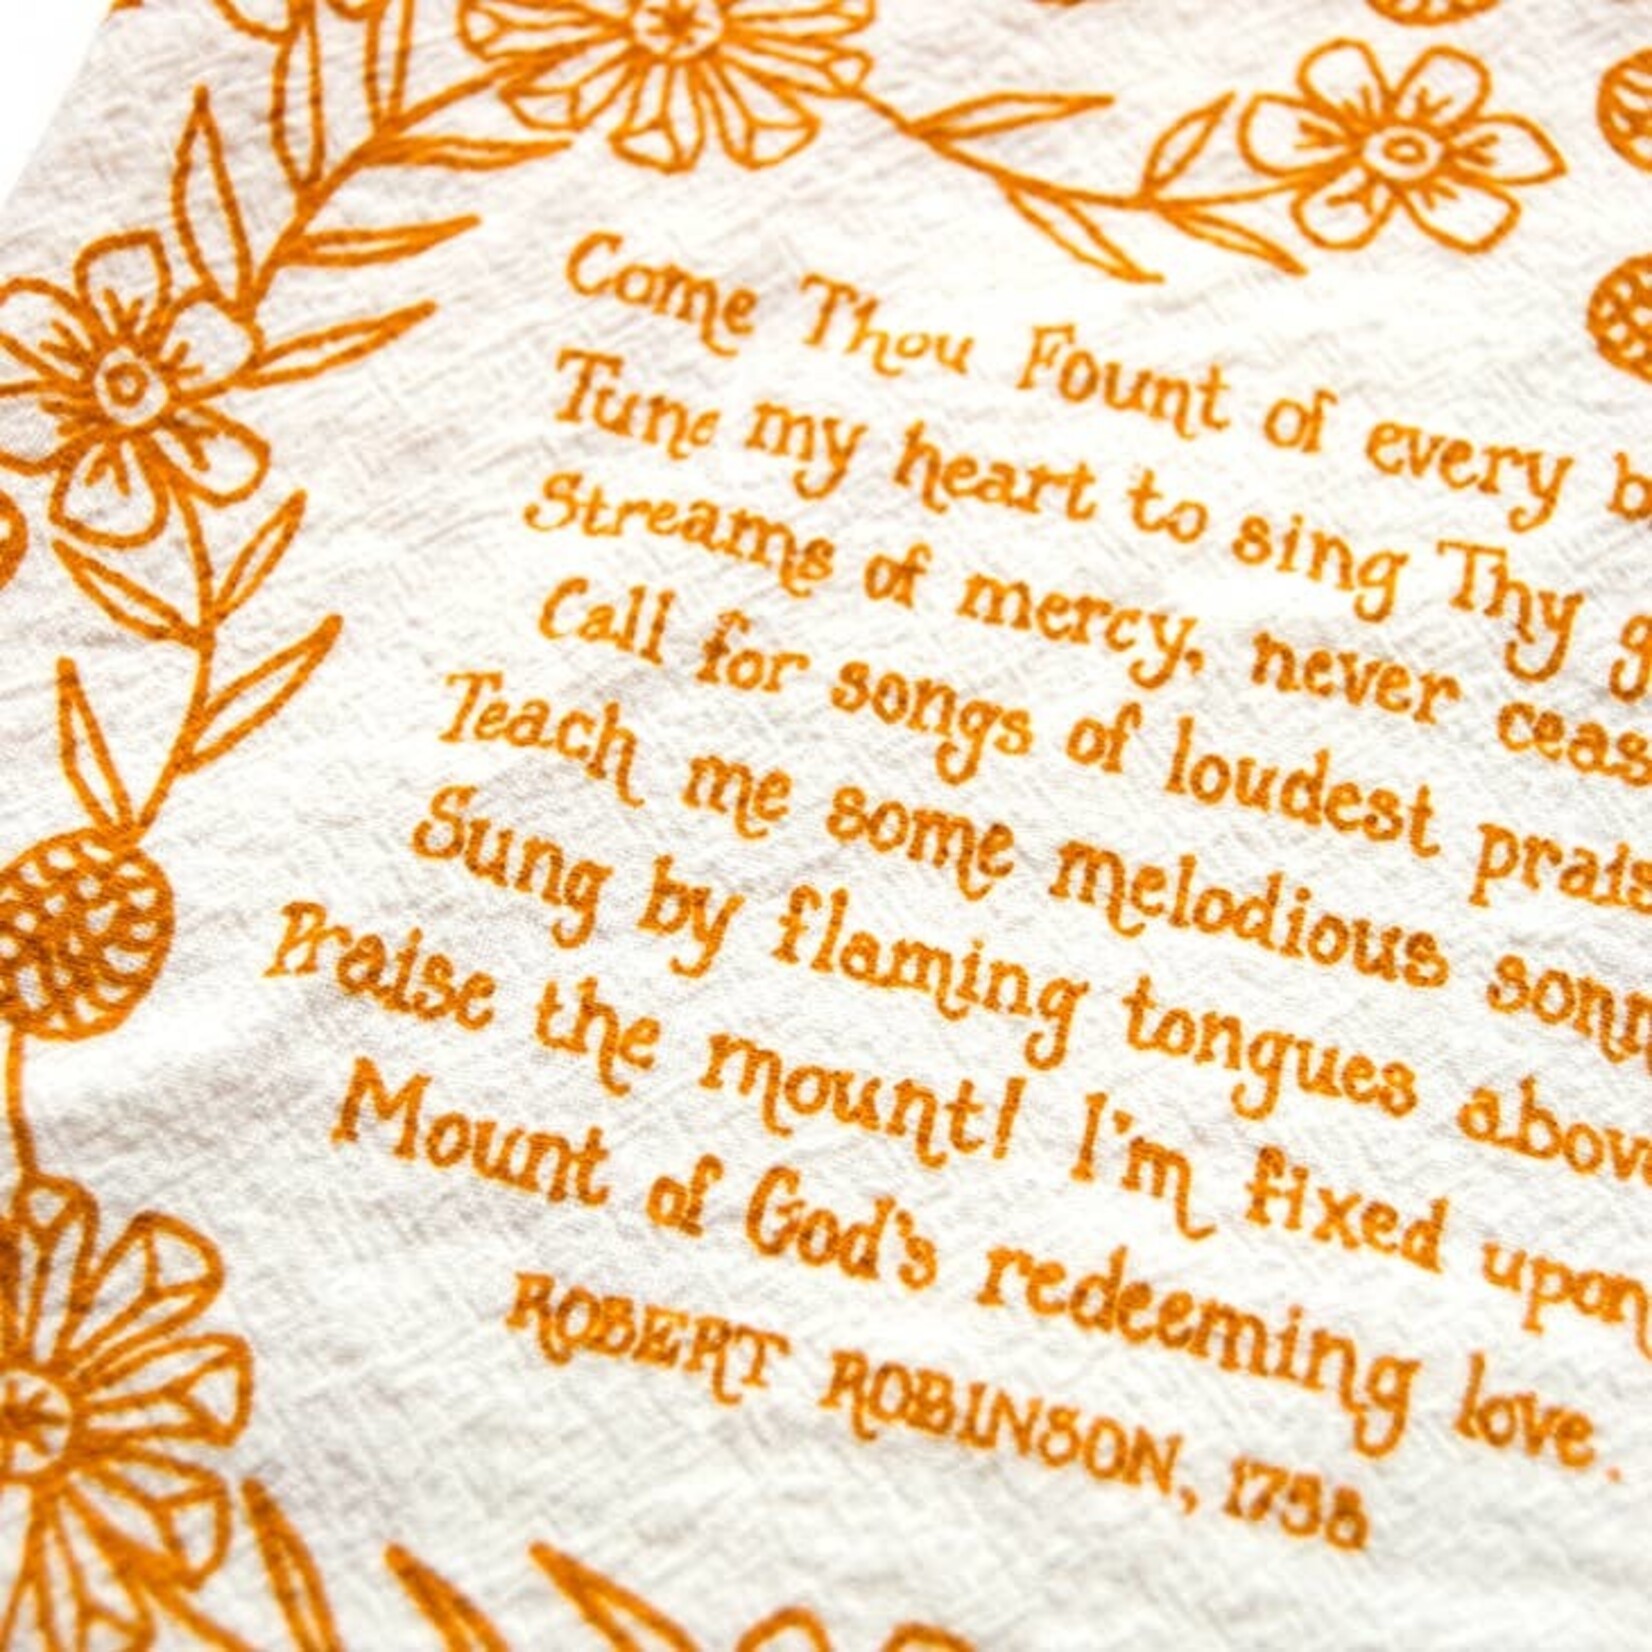 Come Thou Fount of every b
Tune my heart to sing Thy g
Streams of mercy, never ceas
Call for songs of loudest prais
Teach me some melodious sonn
Sung by flaming tongues abov
Praise the mount! I'm fixed upon
Mount of God's redeeming love.
ROBERT ROBINSON, 1758